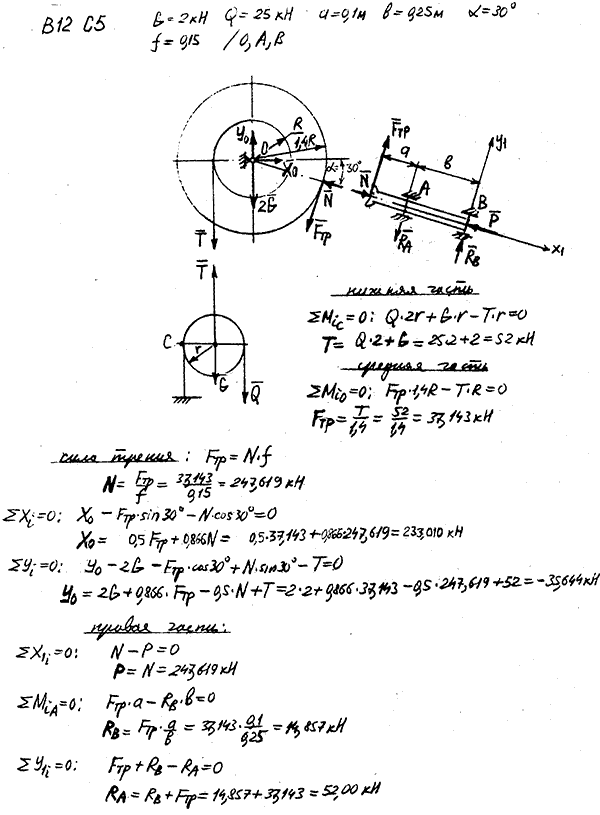 B12 C5 G = 2кН Q = 25 кН a = 0,1м в = 0,25м α = 30°
f = 0,15 /0, A, B
y₀ O R 1,4R X₀ α=30° N̄ F̄тр 2Ḡ T̄
F̄тр a в y₁ N̄ A B P̄ R̄A R̄B x₁
T̄
C r Ḡ Q̄
нижняя часть
ΣMic = 0: Q·2r + G·r − T·r = 0
T = Q·2 + G = 25·2 + 2 = 52 кН
средняя часть
ΣMi0 = 0; Fтр·1,4R − T·R = 0
Fтр = T/1,4 = 52/1,4 = 37,143 кН
сила трения: Fтр = N·f
N = Fтр/f = 37,143/0,15 = 247,619 кН
ΣXi = 0; X₀ − Fтр·sin30° − N·cos30° = 0
X₀ = 0,5Fтр + 0,866N = 0,5·37,143 + 0,866·247,619 = 233,010 кН
ΣYi = 0; Y₀ − 2G − Fтр·cos30° + N·sin30° − T = 0
Y₀ = 2G + 0,866·Fтр − 0,5·N + T = 2·2 + 0,866·37,143 − 0,5·247,619 + 52 = −35,644 кН
правая часть:
ΣX₁i = 0; N − P = 0
P = N = 247,619 кН
ΣMiA = 0; Fтр·a − RB·в = 0
RB = Fтр·a/в = 37,143·0,1/0,25 = 14,857 кН
ΣY₁i = 0; Fтр + RB − RA = 0
RA = RB + Fтр = 14,857 + 37,143 = 52,00 кН